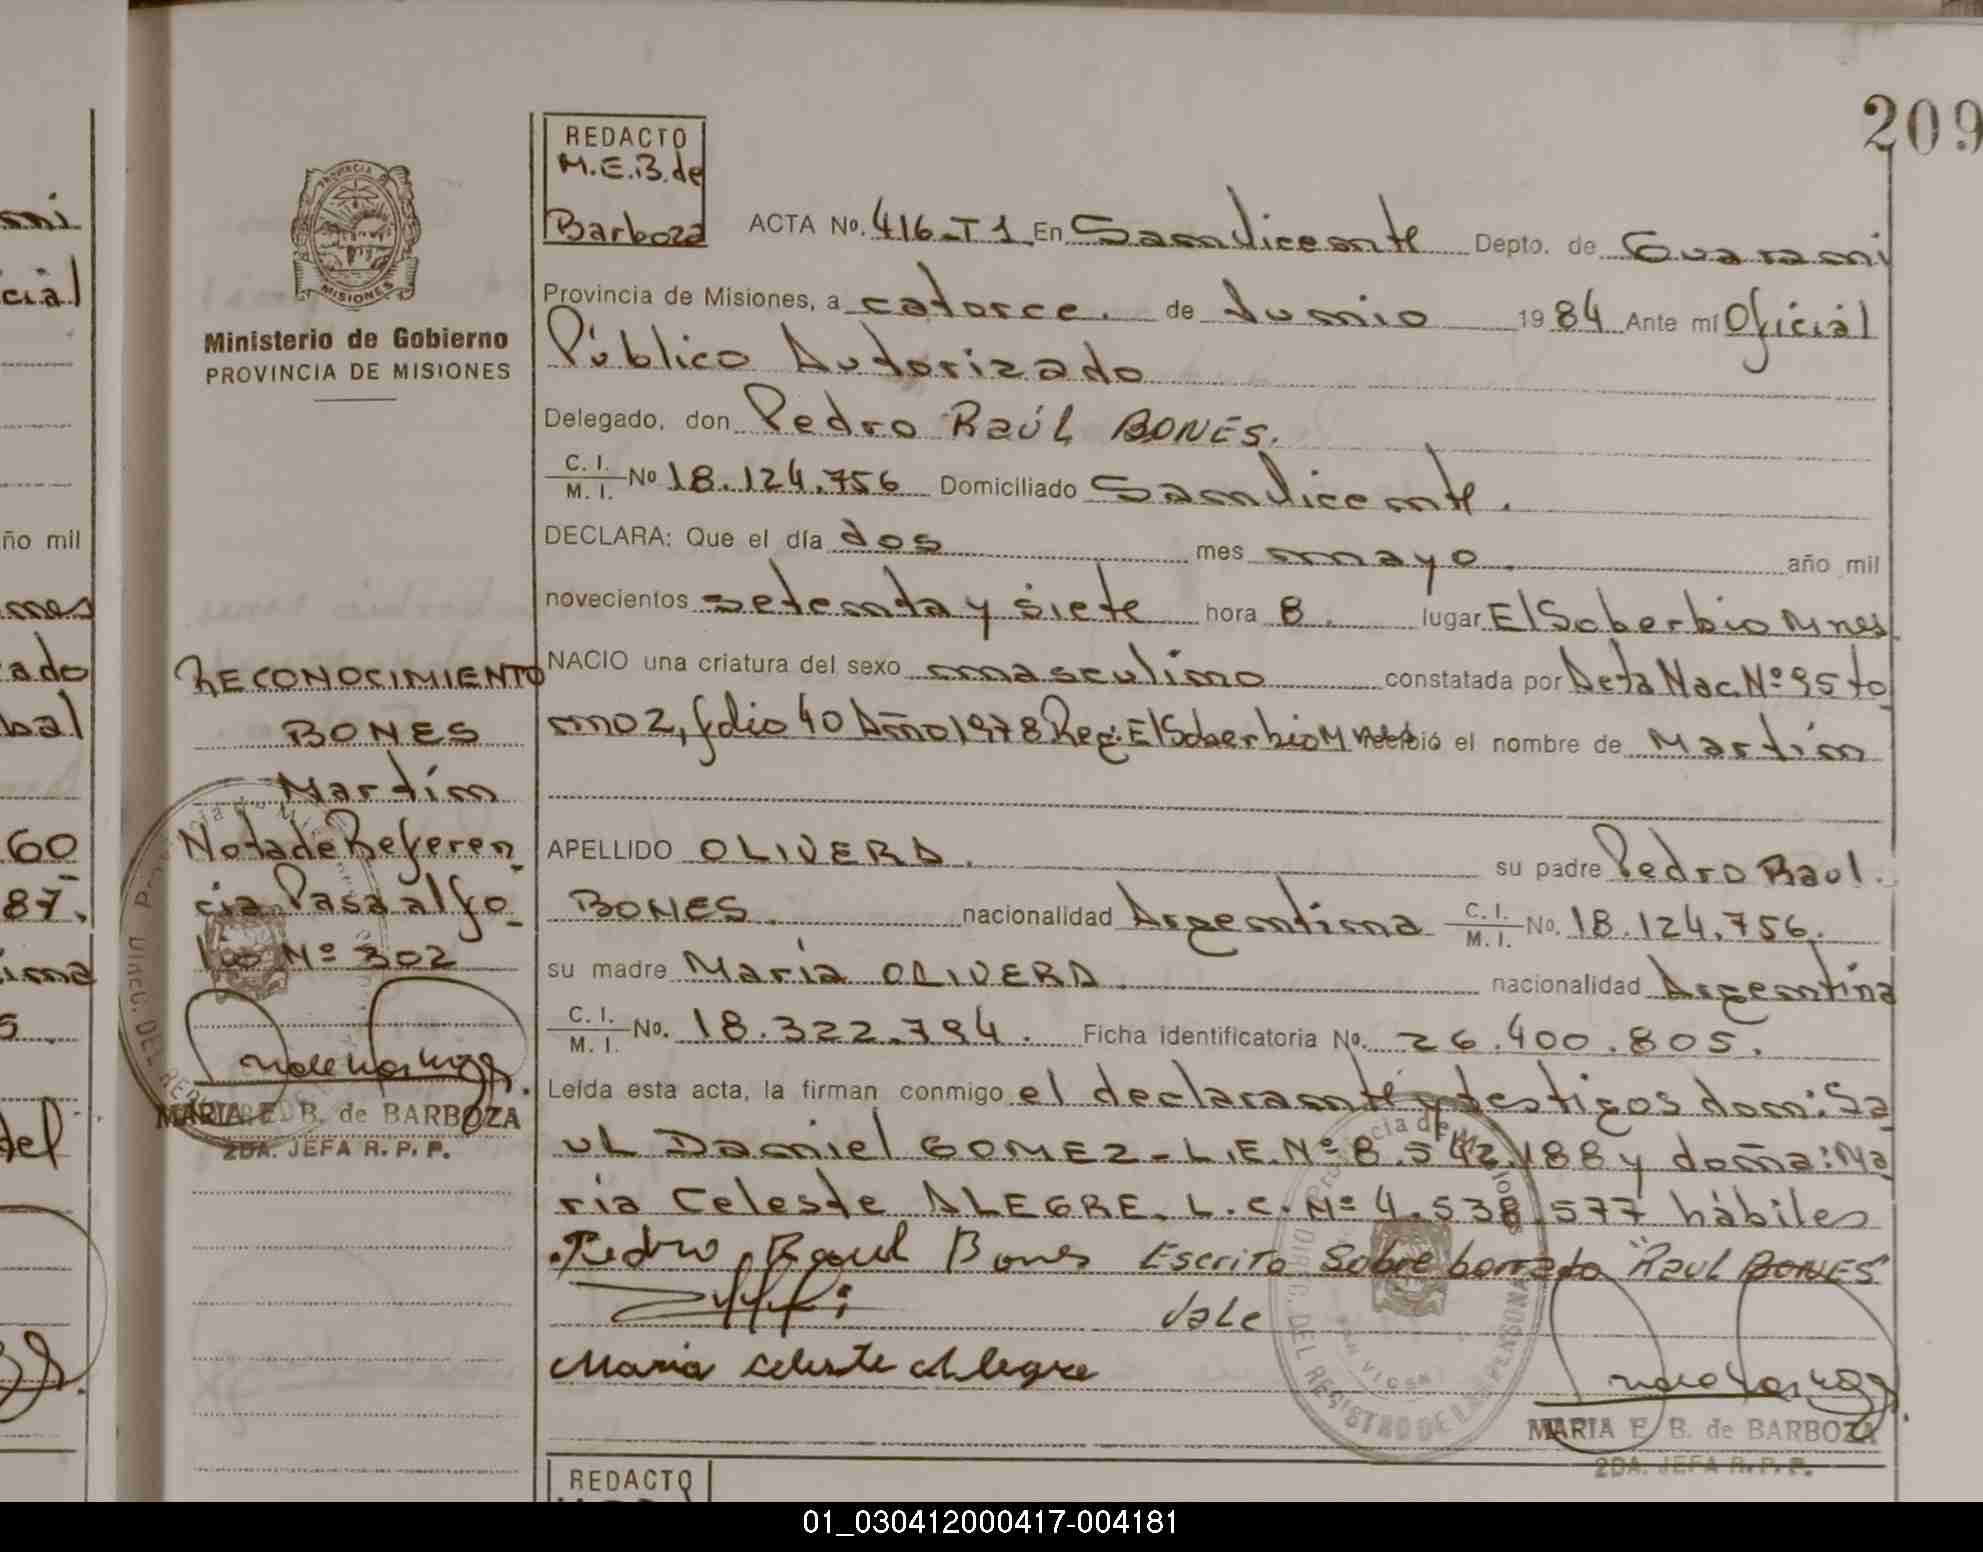 209
REDACTO
M.E.B. de
Barboza
PROVINCIA DE
MISIONES
Ministerio de Gobierno
PROVINCIA DE MISIONES
ACTA No. 416-T1 En San Vicente Depto. de Guarani
Provincia de Misiones, a catorce. de Junio 1984 Ante mí Oficial
Público Autorizado
Delegado, don Pedro Raúl BONES.
C. I. / M. I. No 18.124.756 Domiciliado San Vicente.
DECLARA: Que el día dos mes mayo. año mil
novecientos setenta y siete hora 8. lugar El Soberbio Mnes
NACIO una criatura del sexo masculino constatada por Acta Nac. Nº 95 to
mo 2, folio 40 Año 1978 Reg: El Soberbio Mnes recibió el nombre de Martín
APELLIDO OLIVERA. su padre Pedro Raul.
BONES. nacionalidad Argentina C. I. / M. I. No. 18.124.756.
su madre María OLIVERA nacionalidad Argentina
C. I. / M. I. No. 18.322.794. Ficha identificatoria No. 26.400.805.
Leída esta acta, la firman conmigo el declarante y testigos don: Sa
ul Daniel GOMEZ - L.E. Nº 8.542.188 y doña: Ma
ria Celeste ALEGRE. L.C. Nº 4.538.577 hábiles
Pedro Raul Bones Escrito Sobre borrado "Raul BONES"
Vale
Maria Celeste Alegre
MARIA E. B. de BARBOZA
2DA. JEFA R. P. P.
RECONOCIMIENTO
BONES
Martín
Nota de Referen
cia Pasa al fo
lio Nº 302
MARIA E. B. de BARBOZA
2DA. JEFA R. P. P.
REDACTO
ni
cial
ño mil
ado
60
87.
5.
del
01_030412000417-004181